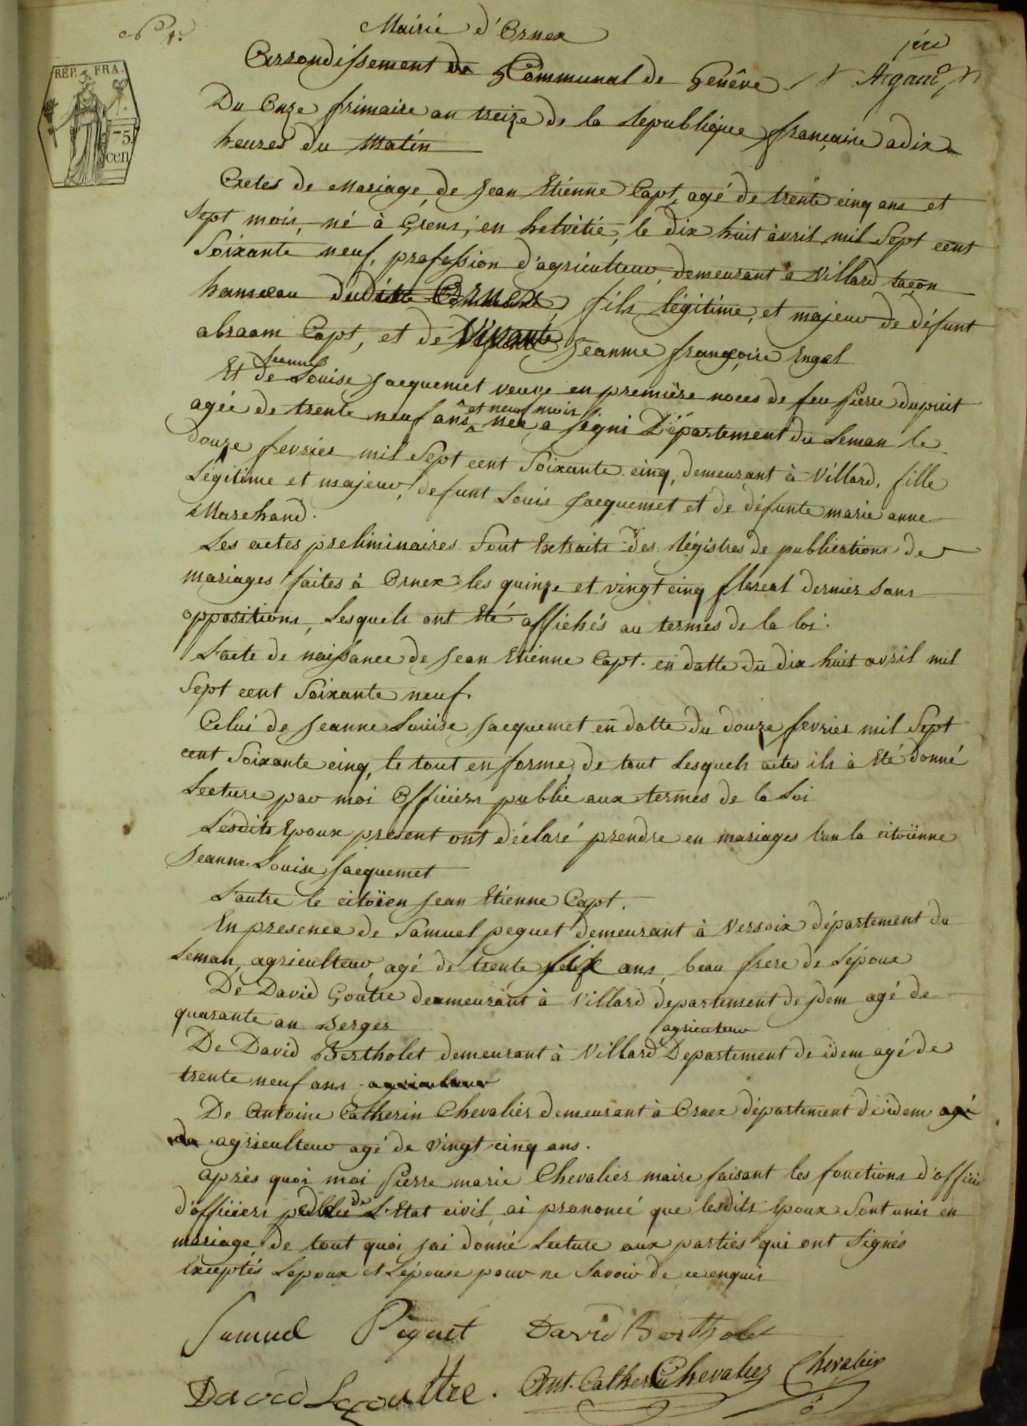 N° 1er
Mairie d'Ornex
Arrondissement Communal de Genève
REP. FRA.
75
cen
Du Onze frimaire an treize de la republique française a dix
heures du Matin
Actes de Mariage de Jean Etienne Capt, agé de trente cinq ans et
sept mois, né à Grens, en helvitie, le dix huit avril mil Sept cent
Soixante neuf, profession d'agriculteur, demeurant à Villard taçon
hameau dudit Ornex, fils légitime, et majeur de défunt
abraam Capt, et de Vivante Jeanne françoise Engel
Et de Jeanne Louise Jacquemet veuve en première noces de feu pierre dupuit
agée de trente neuf ans et neuf mois née a Segni Département du Leman le
douze fevrier mil Sept cent Soixante cinq, demeurant à Villard, fille
Légitime et majeur, defunt Louis Jacquemet et de défunte marie anne
Marchand.
Les actes preliminaires Sont Extraits des Régistres de publications de
mariages faites à Ornex les quinze et vingt cinq floreal dernier sans
oppositions, Lesquels ont Eté affichés au termes de la loi.
L'acte de naissance de Jean Etienne Capt en datte du dix huit avril mil
Sept cent Soixante neuf.
Celui de Jeanne Louise Jacquemet en datte du douze fevrier mil Sept
cent Soixante cinq, le tout en forme, de tout Lesquels actes ils à Eté donné
Lecture par moi Officiers public aux termes de la Loi
Lesdits Epoux présent ont déclaré prendre en mariages l'un la citoïenne
Jeanne Louise Jacquemet
L'autre le citoïen Jean Etienne Capt.
En presence de Samuel peguet demeurant à Versoix département du
Leman, agriculteur, agé de trente ans, beau frere de L'époux
De David Goutre demeurant à Villard département de idem agé de
quarante an Berger
agriculteur
De David Bertholet demeurant à Villard Departement de idem agé de
trente neuf ans agriculteur
De Antoine Catherin Chevalier demeurant à Ornex département de idem agé
du agriculteur agé de vingt cinq ans.
après quoi moi Pierre marie Chevalier maire faisant les fonctions d'offici
d'officiers public de L'Etat civil, ai prononcé que lesdits Epoux Sont unis en
mariage, de tout quoi j'ai donné Lecture aux parties qui ont Signés
Exceptés L'epoux et L'épouse pour ne Savoir de ce enquis
Samuel Péguet David Bertholet
David Lecoultre. Ant. Catherin Chevalier Chevalier